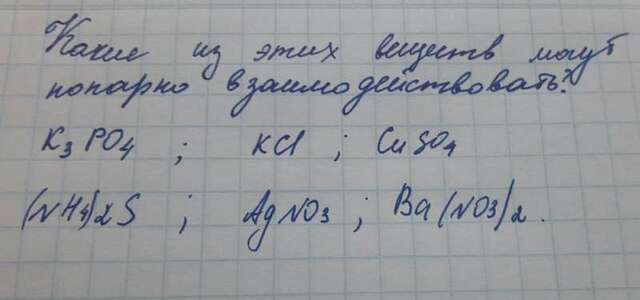 Какие из этих веществ могут
попарно взаимодействовать?
K3PO4 ; KCl ; CuSO4
(NH4)2S ; AgNO3 ; Ba(NO3)2.